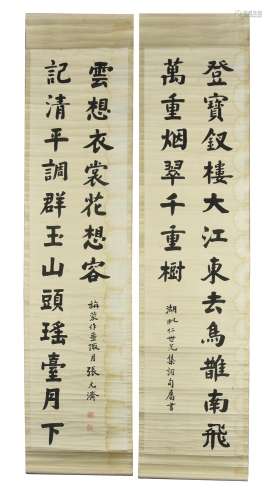 登寶釵樓大江東去烏鵲南飛
萬重烟翠千重樹
湖帆仁世兄集詞句屬書
記清平調群玉山頭瑤臺月下
雲想衣裳花想容
張元濟